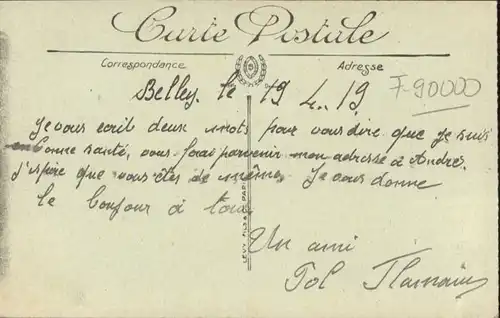 Carte Postale
Correspondance
Adresse
F-90000
Belley. le 19 4. 19
Je vous ecrit deux mots pour vous dire que je suis
en bonne santé, vous ferai parvenir mon adresse à Andrée.
j'espère que vous êtes de même. Je vous donne
le bonjour à tous
Un ami
Pol
LEVY FILS & PARIS